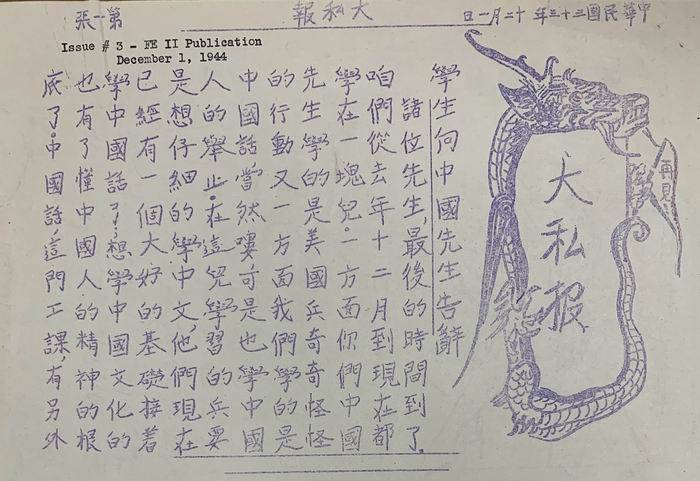 中華民國三十三年 十二月一日
大私報
第一張
Issue # 3 - FE II Publication
December 1, 1944
大私报
再見
學生向中國先生告辭
諸位先生,最後的時間到了.
咱們從去年十二月到現在都
學在一塊兒.一方面你們中國
先生學的是美國兵奇奇怪怪
的行動又一方面我們學的是
中國話當然嘍可是也學中國
人的舉止.在這兒學習的兵要
是想仔細的學中文,他們現在
已經有一個大好的基礎接着
學中國話了,想學中國文化的
也有了懂中國人的精神的根
底了.中國話,這門工課,有另外